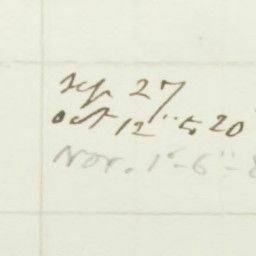 sep 27
oct 12 " 5. 20
Nov. 1 - 6 " -